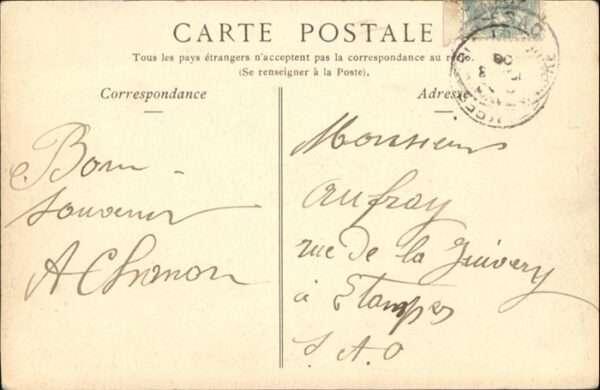 CARTE POSTALE
Tous les pays étrangers n'acceptent pas la correspondance au
(Se renseigner à la Poste).
Correspondance
Adresse
Bon
Souvenir
A Chanon
Monsieur
Aufray
rue de la Juivery
à Etampes
S. A. O